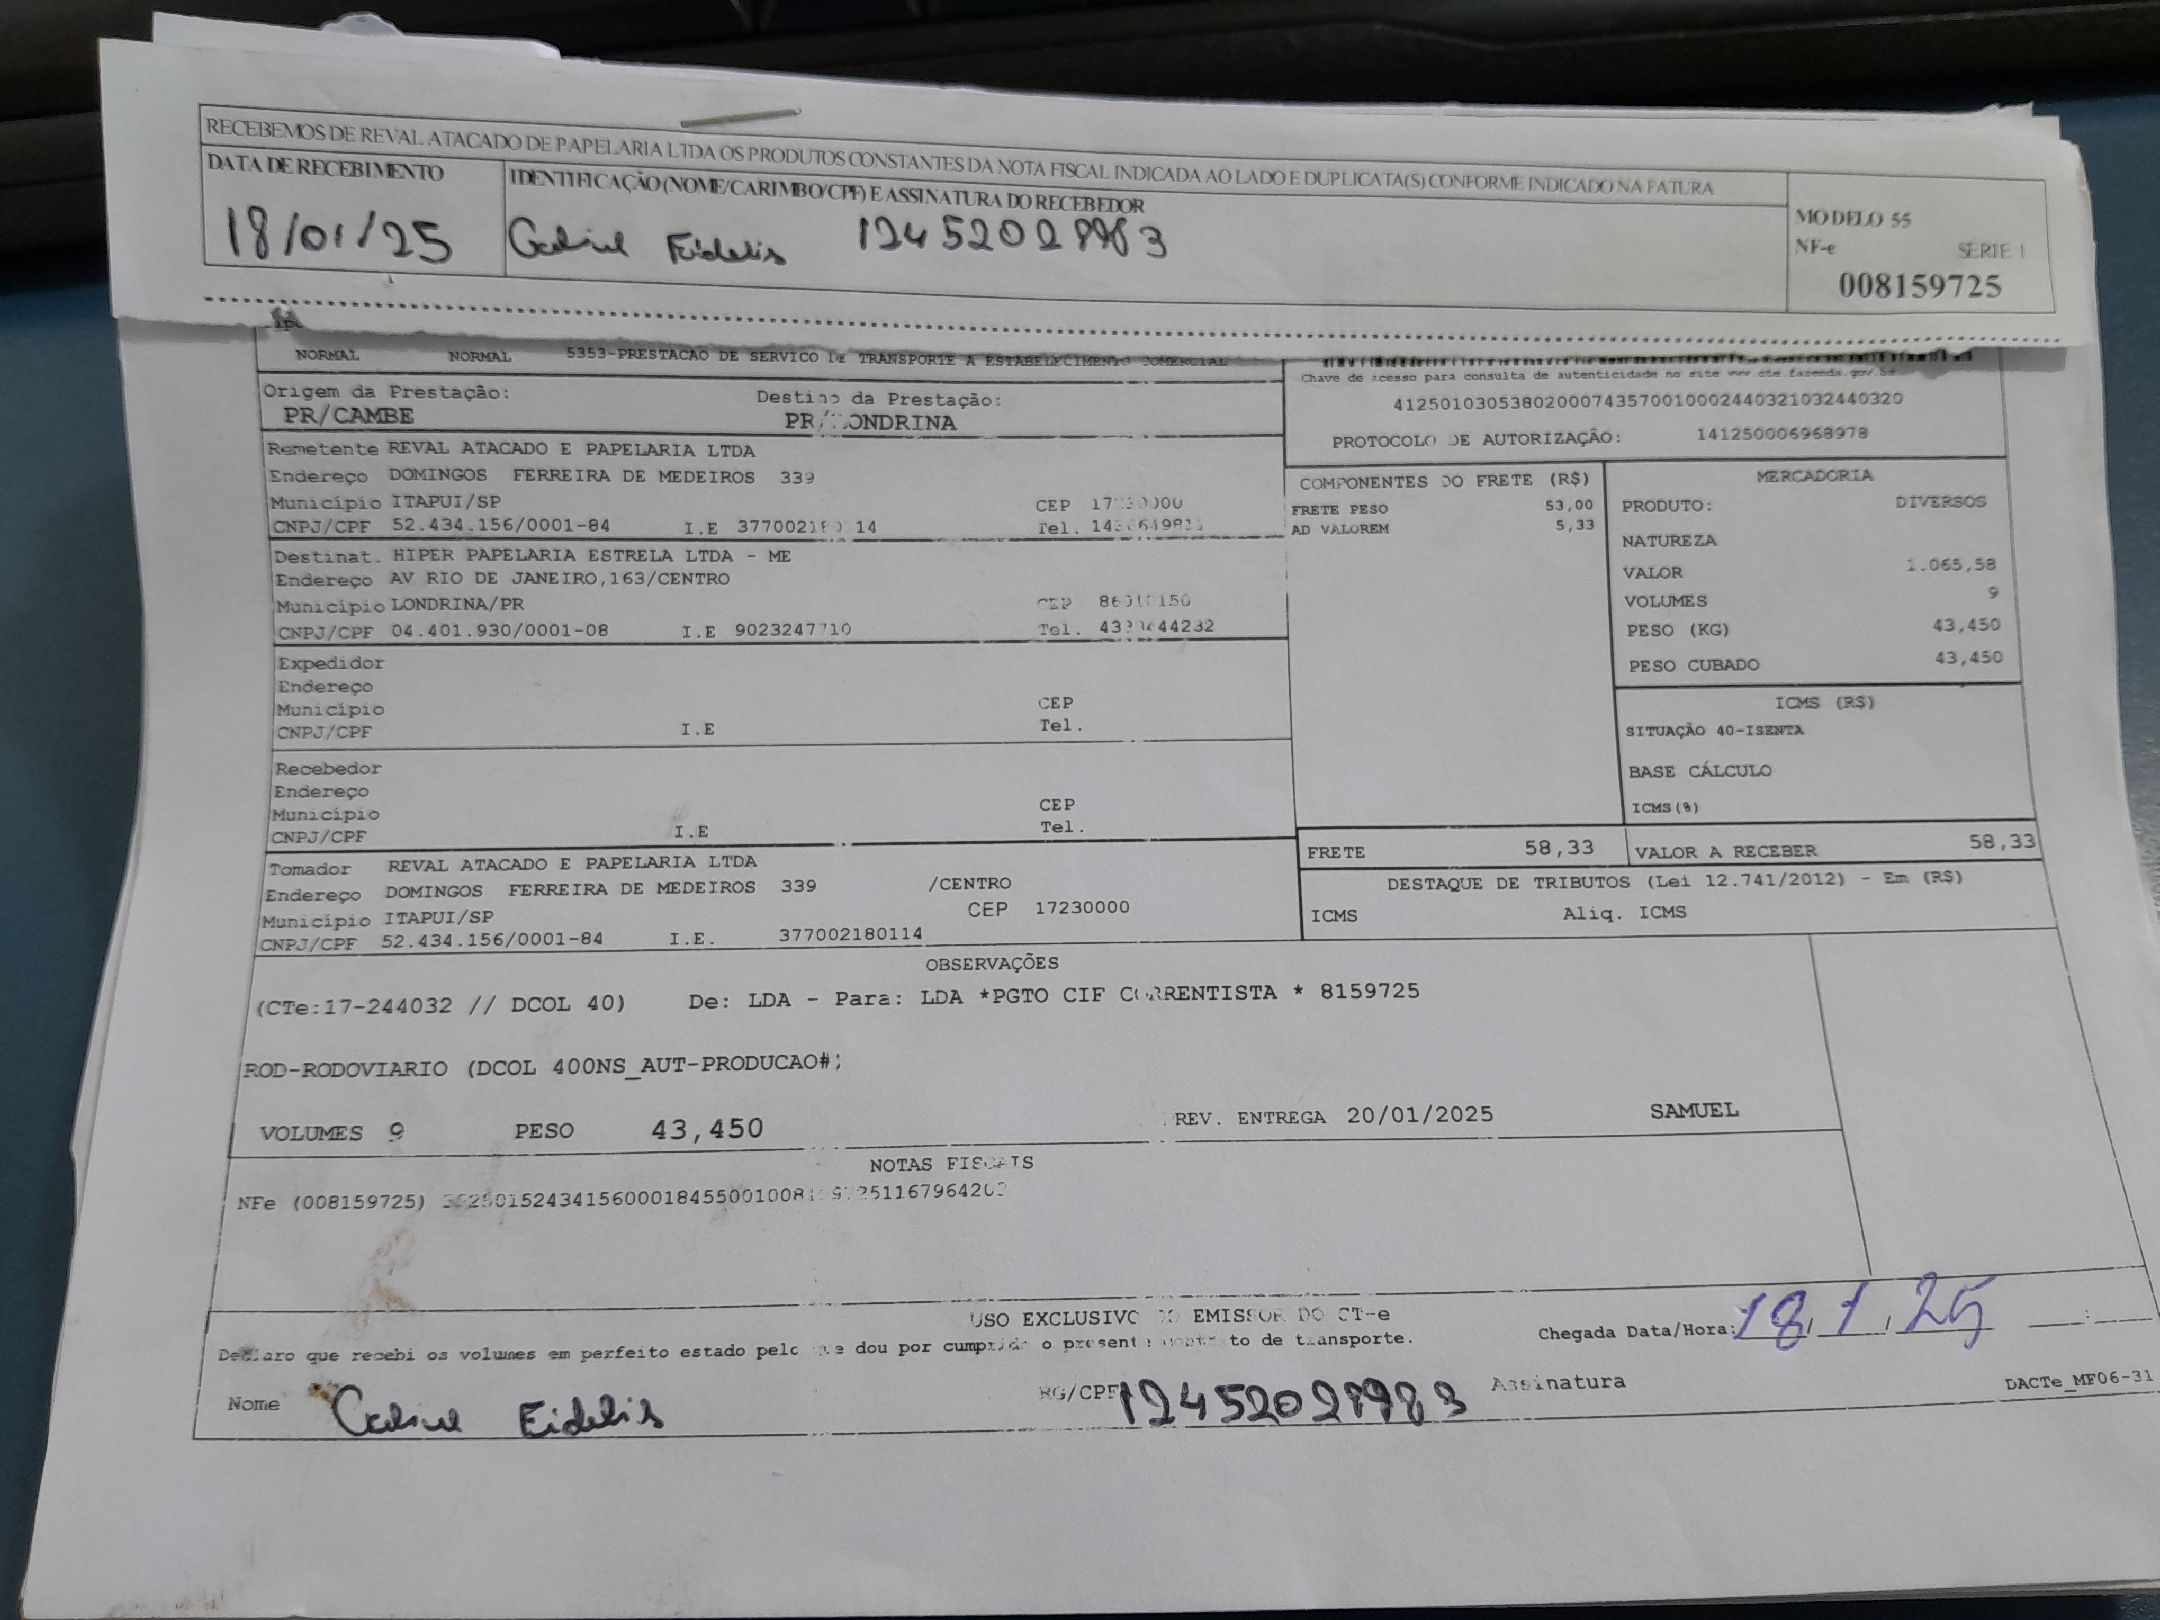 RECEBEMOS DE REVAL ATACADO DE PAPELARIA LTDA OS PRODUTOS CONSTANTES DA NOTA FISCAL INDICADA AO LADO E DUPLICATA(S) CONFORME INDICADO NA FATURA
DATA DE RECEBIMENTO
IDENTIFICAÇÃO (NOME/CARIMBO/CPF) E ASSINATURA DO RECEBEDOR
MODELO 55
18/01/25 Gabriel Fidelis
NF-e SÉRIE 1
008159725
NORMAL NORMAL 5353-PRESTACAO DE SERVICO DE TRANSPORTE A ESTABELECIMENTO COMERCIAL
Chave de acesso para consulta de autenticidade no site www.cte.fazenda.gov.br
Origem da Prestação: Destino da Prestação:
PR/CAMBE PR/LONDRINA
41250103053802000743570010002440321032440320
PROTOCOLO DE AUTORIZAÇÃO: 141250006968978
Remetente REVAL ATACADO E PAPELARIA LTDA
Endereço DOMINGOS FERREIRA DE MEDEIROS 339
Município ITAPUI/SP CEP
CNPJ/CPF 52.434.156/0001-84 I.E Tel.
COMPONENTES DO FRETE (R$)
FRETE PESO 53,00
AD VALOREM 5,33
MERCADORIA
PRODUTO: DIVERSOS
NATUREZA
VALOR 1.065,58
VOLUMES 9
PESO (KG) 43,450
PESO CUBADO 43,450
Destinat. HIPER PAPELARIA ESTRELA LTDA - ME
Endereço AV RIO DE JANEIRO,163/CENTRO
Município LONDRINA/PR CEP
CNPJ/CPF 04.401.930/0001-08 I.E 9023247710 Tel.
Expedidor
Endereço
Município CEP
CNPJ/CPF I.E Tel.
ICMS (R$)
SITUAÇÃO 40-ISENTA
BASE CÁLCULO
ICMS(%)
Recebedor
Endereço
Município CEP
CNPJ/CPF I.E Tel.
FRETE 58,33 VALOR A RECEBER 58,33
Tomador REVAL ATACADO E PAPELARIA LTDA
Endereço DOMINGOS FERREIRA DE MEDEIROS 339 /CENTRO
Município ITAPUI/SP CEP 17230000
CNPJ/CPF 52.434.156/0001-84 I.E. 377002180114
DESTAQUE DE TRIBUTOS (Lei 12.741/2012) - Em (R$)
ICMS Aliq. ICMS
OBSERVAÇÕES
(CTe:17-244032 // DCOL 40) De: LDA - Para: LDA *PGTO CIF CORRENTISTA * 8159725
ROD-RODOVIARIO (DCOL 400NS_AUT-PRODUCAO#;
VOLUMES 9 PESO 43,450 REV. ENTREGA 20/01/2025 SAMUEL
NOTAS FISCAIS
NFe (008159725)
USO EXCLUSIVO DO EMISSOR DO CT-e
Declaro que recebi os volumes em perfeito estado pelo que dou por cumprido o presente contrato de transporte.
Chegada Data/Hora: 18/1/25 :
Nome Gabriel Fidelis RG/CPF Assinatura
DACTe_MF06-31